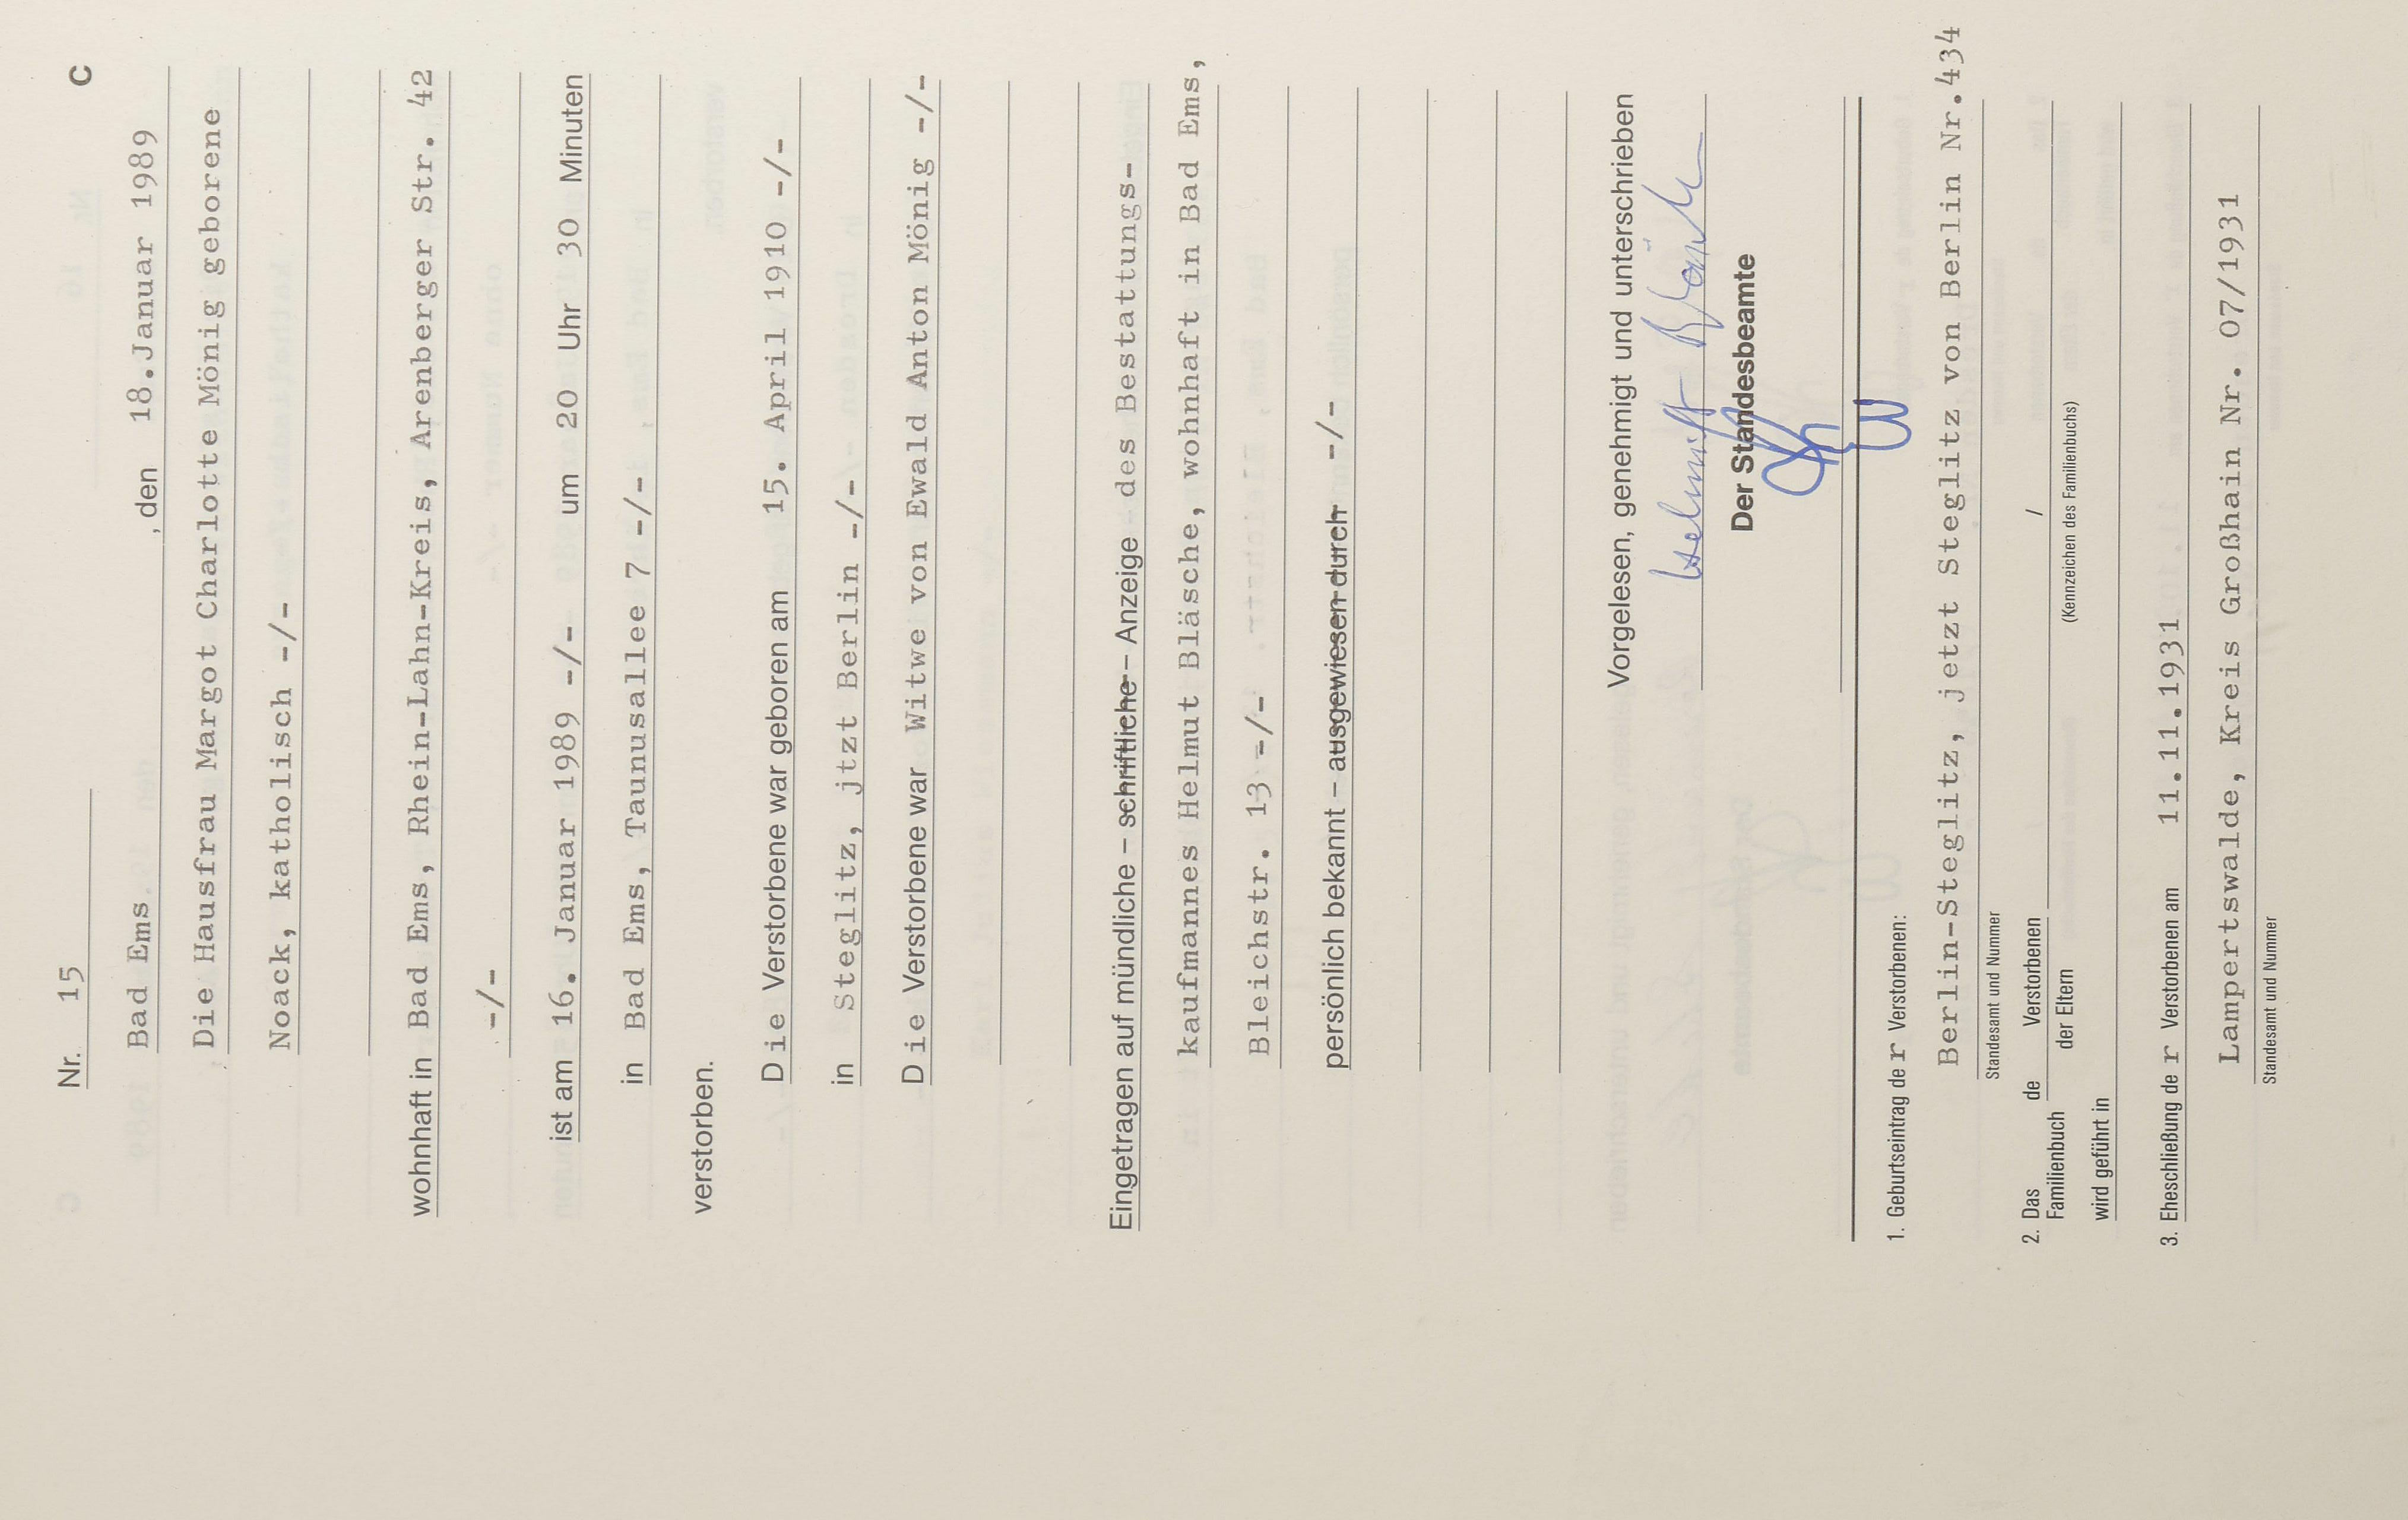 Nr. 15 C
Bad Ems , den 18.Januar 1989
Die Hausfrau Margot Charlotte Mönig geborene
Noack, katholisch -/-
wohnhaft in Bad Ems, Rhein-Lahn-Kreis, Arenberger Str. 42
-/-
ist am 16. Januar 1989 -/- um 20 Uhr 30 Minuten
in Bad Ems, Taunusallee 7 -/-
verstorben.
Die Verstorbene war geboren am 15. April 1910 -/-
in Steglitz, jtzt Berlin -/-
Die Verstorbene war Witwe von Ewald Anton Mönig -/-
Eingetragen auf mündliche – schriftliche – Anzeige des Bestattungs-
kaufmannes Helmut Bläsche, wohnhaft in Bad Ems,
Bleichstr. 13 -/-
persönlich bekannt – ausgewiesen durch -/-
Vorgelesen, genehmigt und unterschrieben
Helmut Bläsche
Der Standesbeamte
1. Geburtseintrag der Verstorbenen:
Berlin-Steglitz, jetzt Steglitz von Berlin Nr.434
Standesamt und Nummer
2. Das Familienbuch de Verstorbenen /
der Eltern (Kennzeichen des Familienbuchs)
wird geführt in
3. Eheschließung der Verstorbenen am 11.11.1931
Lampertswalde, Kreis Großhain Nr. 07/1931
Standesamt und Nummer